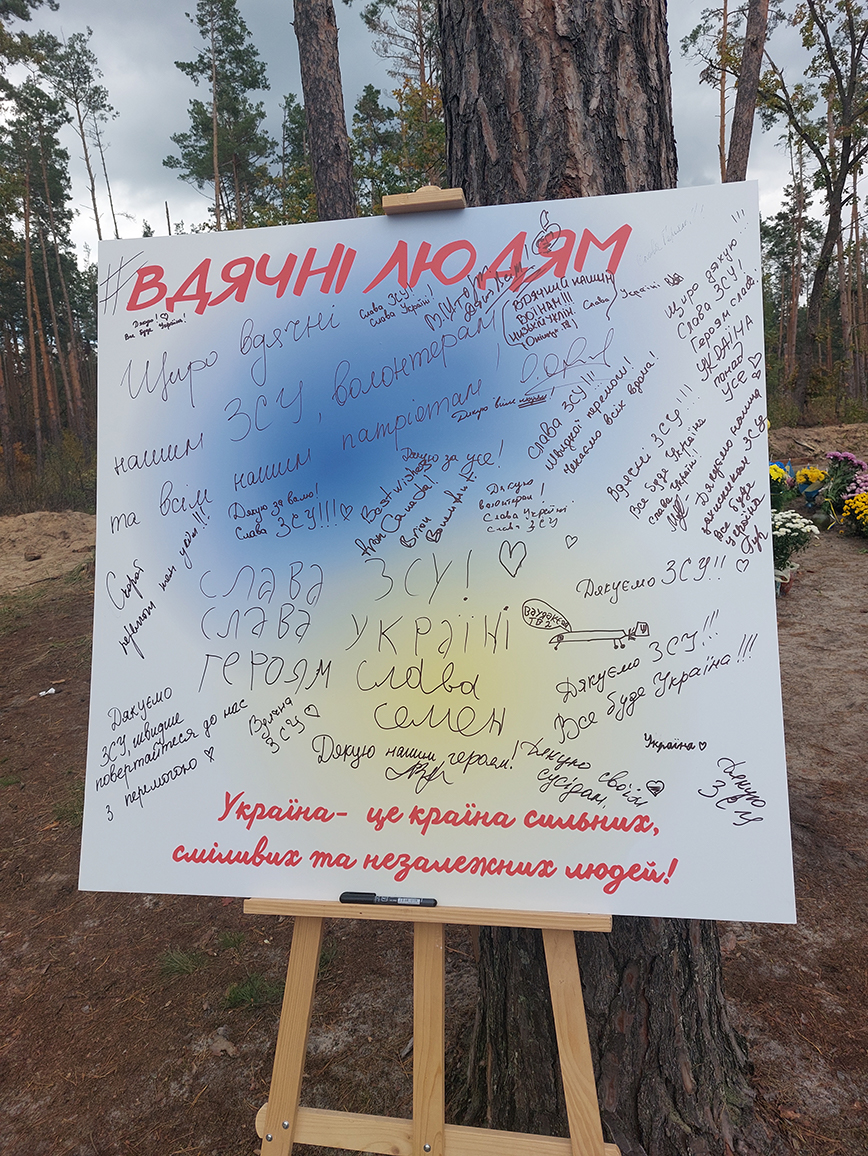 #ВДЯЧНІ ЛЮДЯМ
Дякую! ♡
Все буде Україна!
Слава ЗСУ!
Слава Україні!
ВДЯЧНИЙ НАШИМ
ВОЇНАМ!!!
НИЗЬКИЙ УКЛІН.
Слава Україні
Щиро дякую!!!
Слава ЗСУ!
Героям слава!
УКРАЇНА
ПОНАД
УСЕ ♡
Щиро вдячні
нашим ЗСУ, волонтерам
та всім нашим патріотам!
Дякую всім
Слава ЗСУ!!!
Швидкої перемоги!
Чекаємо всіх вдома!
Вдячні ЗСУ!!!
Все буде Україна
Слава Україні!
Дякуємо
захисникам ЗСУ
Все буде
Україна
♡
Дякую за
Слава ЗСУ!!! ♡
Дякую за усе!
Best wishes
from Canada!
Brian
Дякую
волонтерам!
Слава Україні
Слава ЗСУ
СЛАВА ЗСУ! ♡ ♡
СЛАВА УКРАЇНІ
ГЕРОЯМ Слава
СЕМЕН
Дякуємо ЗСУ!!
Дякуємо ЗСУ!!!
Все буде Україна!!!
Дякуємо
ЗСУ, швидше
повертайтеся до нас
з перемогою ♡
Вдячна
ЗСУ ♡
Дякую нашим героям!
Дякую своїм
сусідам.
Україна ♡
Дякую
ЗСУ
Україна- це країна сильних,
сміливих та незалежних людей!